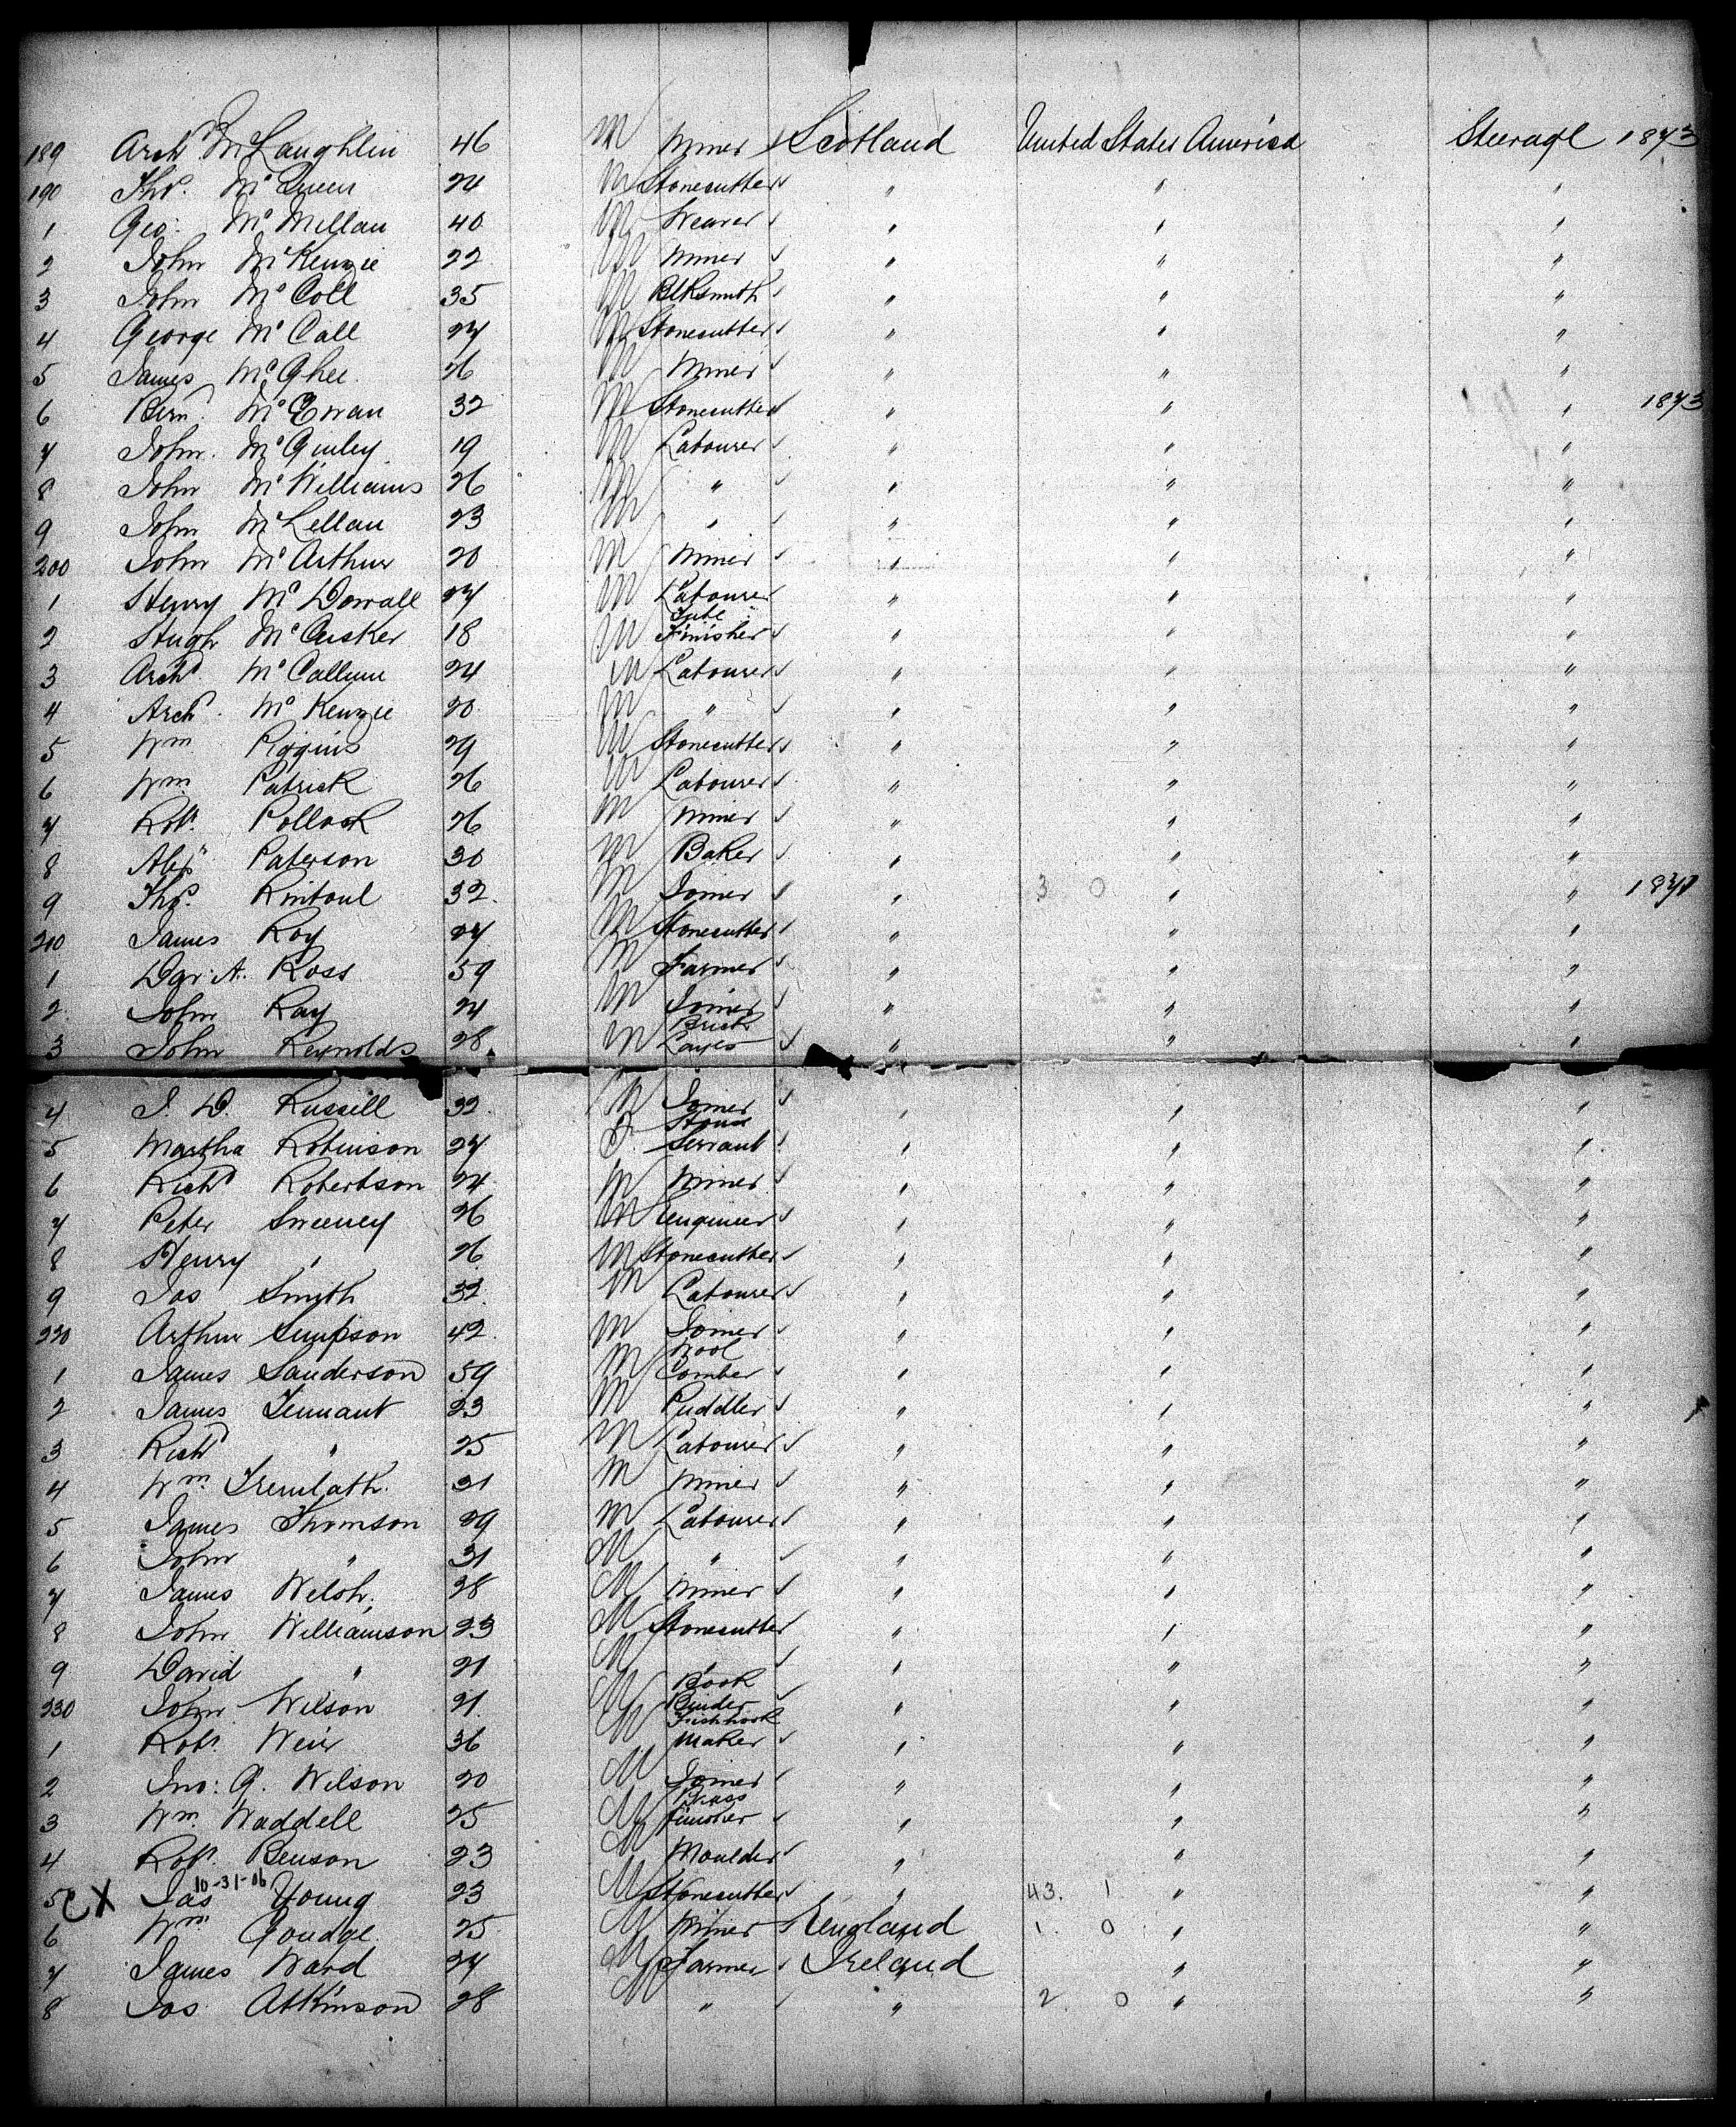 189 Archd McLaughlin 46 M Miner Scotland United States America Steerage 1873
190 Thos. McQueen 24 M Stonecutter " " "
1 Geo: McMillan 40 M Weaver " " "
2 John McKenzie 22 M Miner " " "
3 John McColl 35 M Blksmith " " "
4 George McCall 27 M Stonecutter " " "
5 James McGhee 26 M Miner " " "
6 McEwan 32 M Stonecutter " " " 1873
7 John McGinley 19 M Labourer " " "
8 John McWilliams 26 M " " " "
9 John McLellan 23 M " " " "
200 John McArthur 20 M Miner " " "
1 Henry McDowall 27 M Labourer " " "
2 Hugh McCusker 18 M Tube Finisher " " "
3 Archd. McCallum 24 M Labourer " " "
4 Archd. McKenzie 20 M " " " "
5 Wm Piggins 29 M Stonecutter " " "
6 Wm. Patrick 26 M Labourer " " "
7 Robt. Pollock 26 M Miner " " "
8 Alexr Paterson 30 M Baker " " "
9 Thos. Rintoul 32 M Joiner " 3 0 " "
210 James Roy 27 M Stonecutter " " "
1 A. Ross 59 M Farmer " " "
2 John Ray 24 M Joiner " " "
3 John Reynolds 28 M Brick Layer " " "
4 J. D. Russell 32 M Joiner " " "
5 Martha Robinson 27 F House Servant " " "
6 Richd Robertson 24 M Miner " " "
7 Peter Sweeney 26 M Engineer " " "
8 Henry " 26 M Stonecutter " " "
9 Jas Smith 32 M Labourer " " "
220 Arthur Simpson 42 M Joiner " " "
1 James Sanderson 59 M Wool Comber " " "
2 James Tennant 23 M Puddler " " "
3 Richd " 25 M Labourer " " "
4 Wm. 31 M Miner " " "
5 James Thomson 29 M Labourer " " "
6 John " 31 M " " " "
7 James Welsh 28 M Miner " " "
8 John Williamson 23 M Stonecutter " " "
9 David " 21 M " " " "
230 John Wilson 21 M Book Binder " " "
1 Robt. Weir 36 M Fishhook Maker " " "
2 Jno: G. Wilson 20 M Joiner " " "
3 Wm. Waddell 25 M Brass Finisher " " "
4 Robt. Benson 23 M Moulder " " "
10-31-06
5 CX Jas Young 23 M Stonecutter " 43. 1 " "
6 Wm Goudge 25 M Miner England 1. 0 " "
7 James Ward 27 M Farmer Ireland " "
8 Jos. Atkinson 28 M " " 2. 0 " "